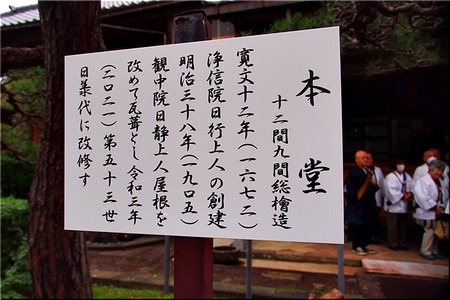 本堂
十二間九間総檜造
寛文十二年（一六七二）
浄信院日行上人の創建
明治三十八年（一九〇五）
観中院日静上人屋根を
改めて瓦葺とし令和三年
（二〇二一）第五十三世
日義代に改修す